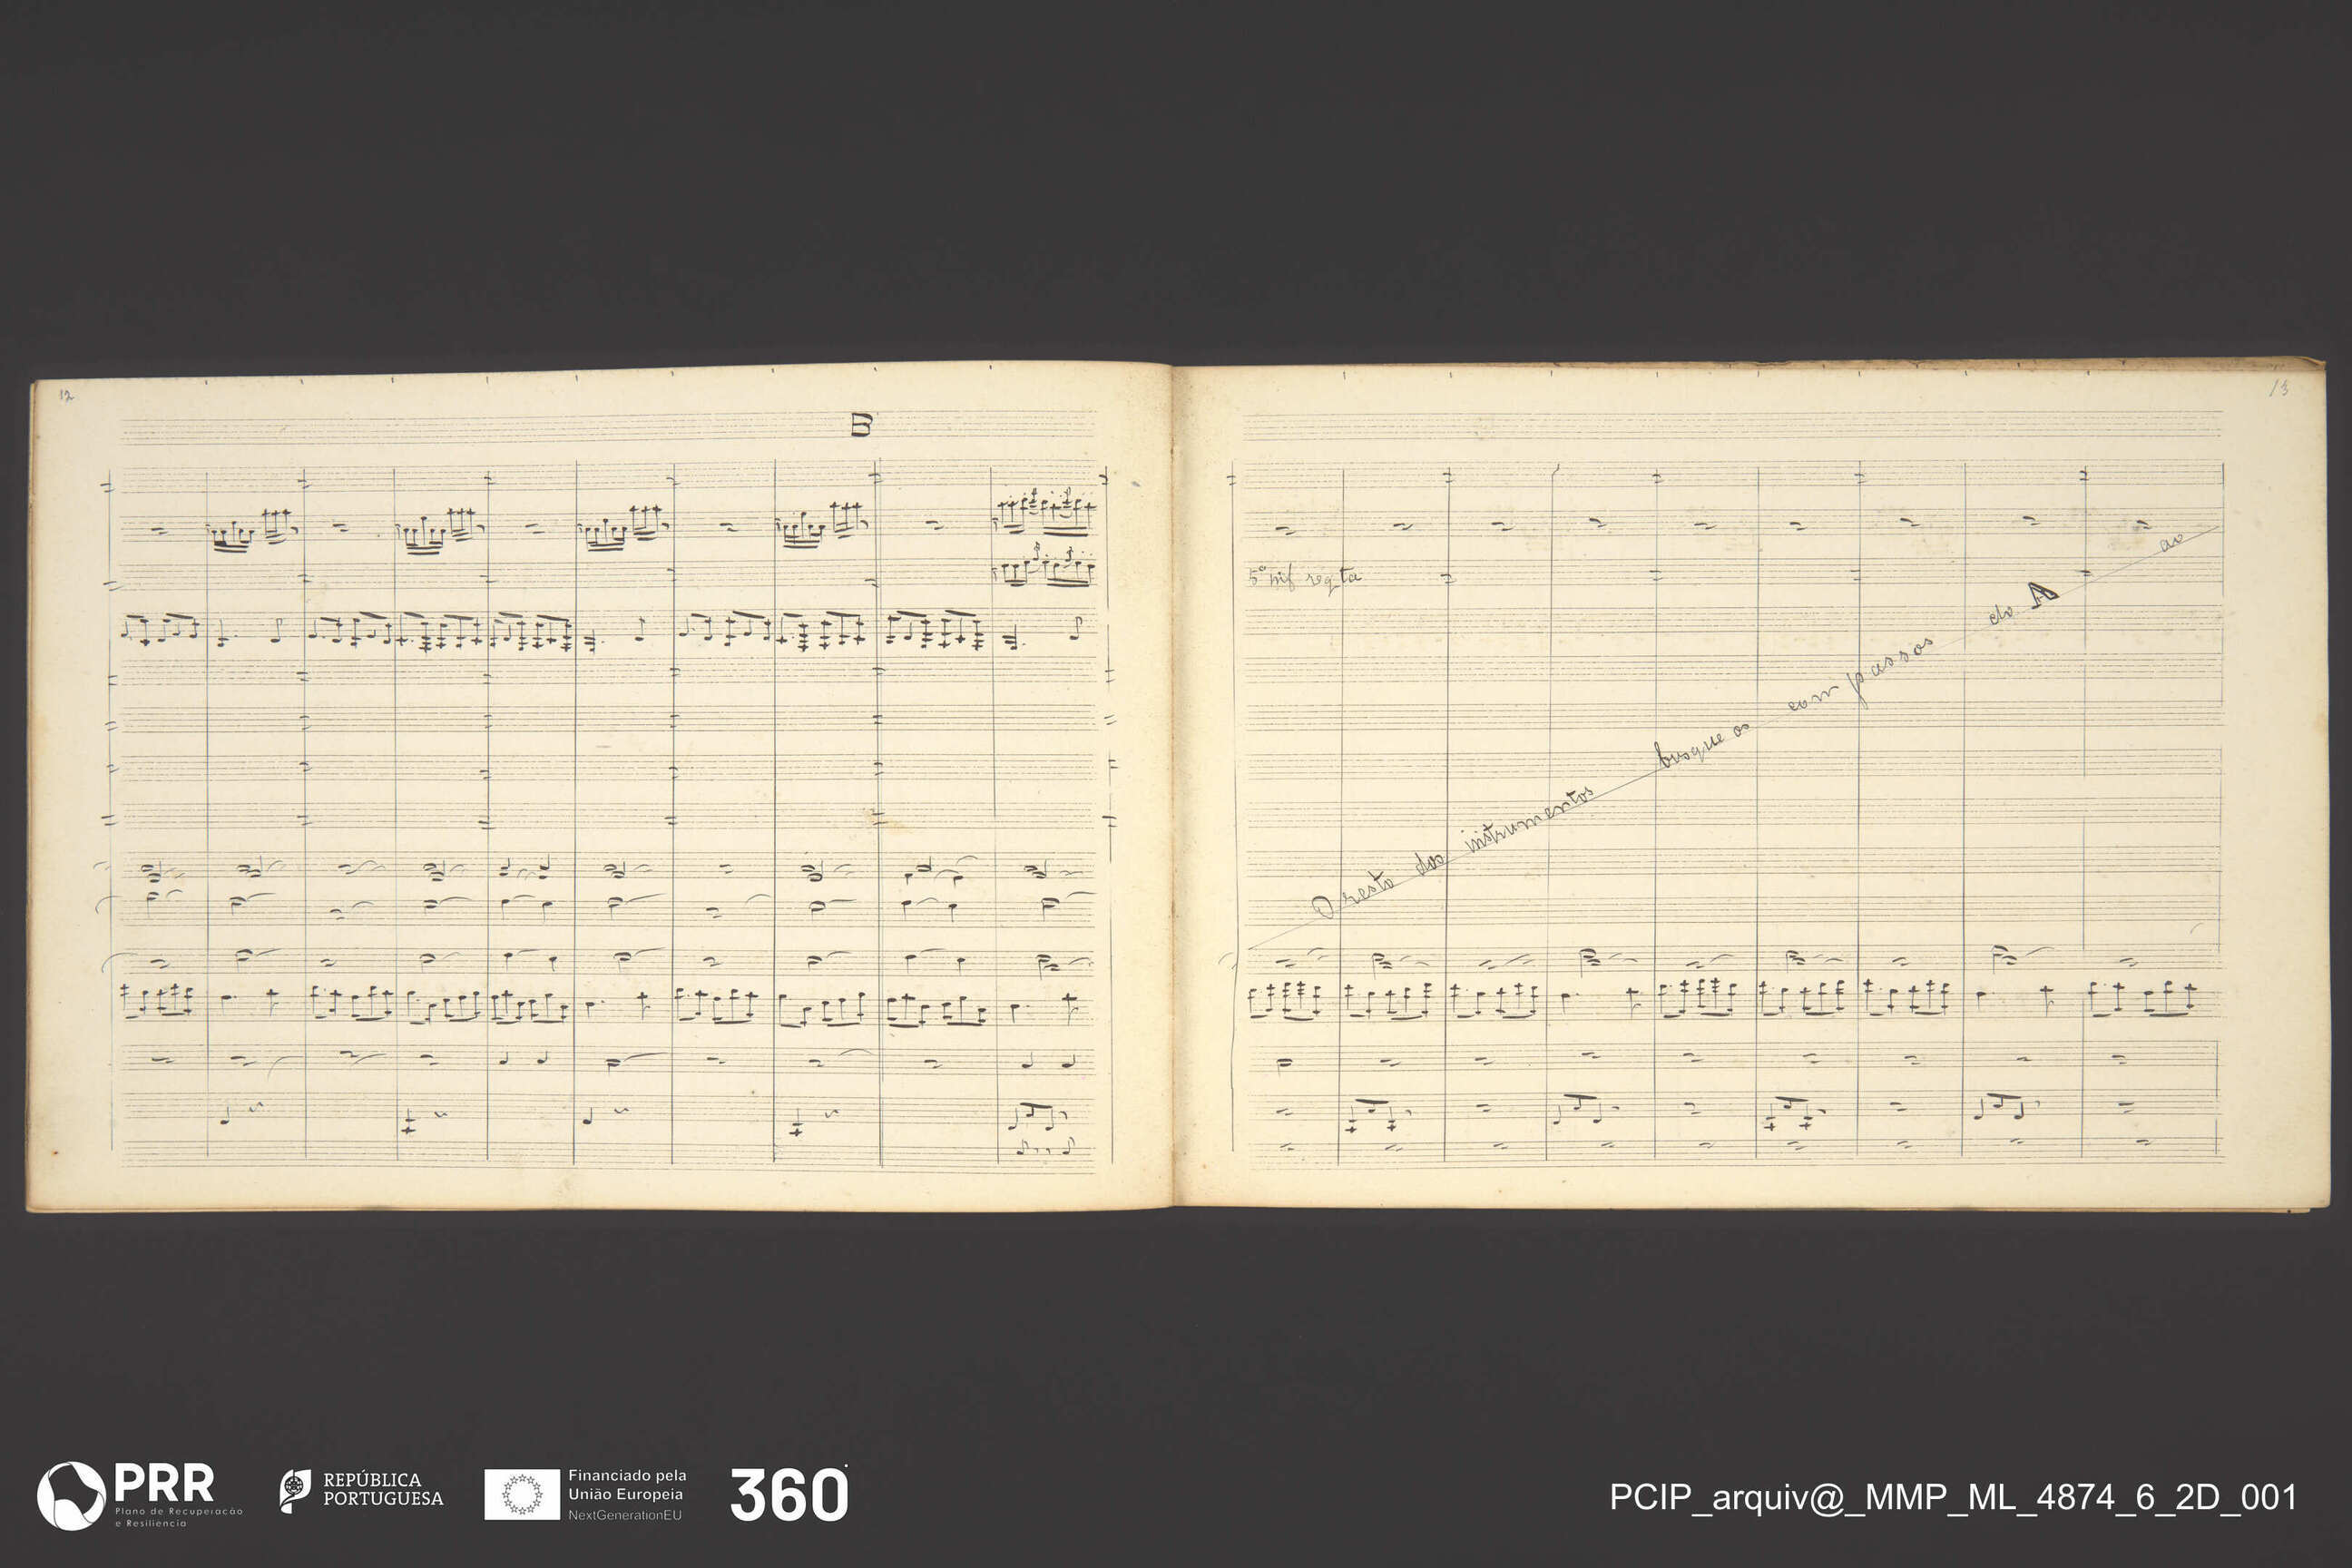 12
B
13
O resto dos instrumentos busque os compassos do A ao
PRR
Plano de Recuperação
e Resiliência
REPÚBLICA
PORTUGUESA
Financiado pela
União Europeia
NextGenerationEU
360
PCIP_arquiv@_MMP_ML_4874_6_2D_001